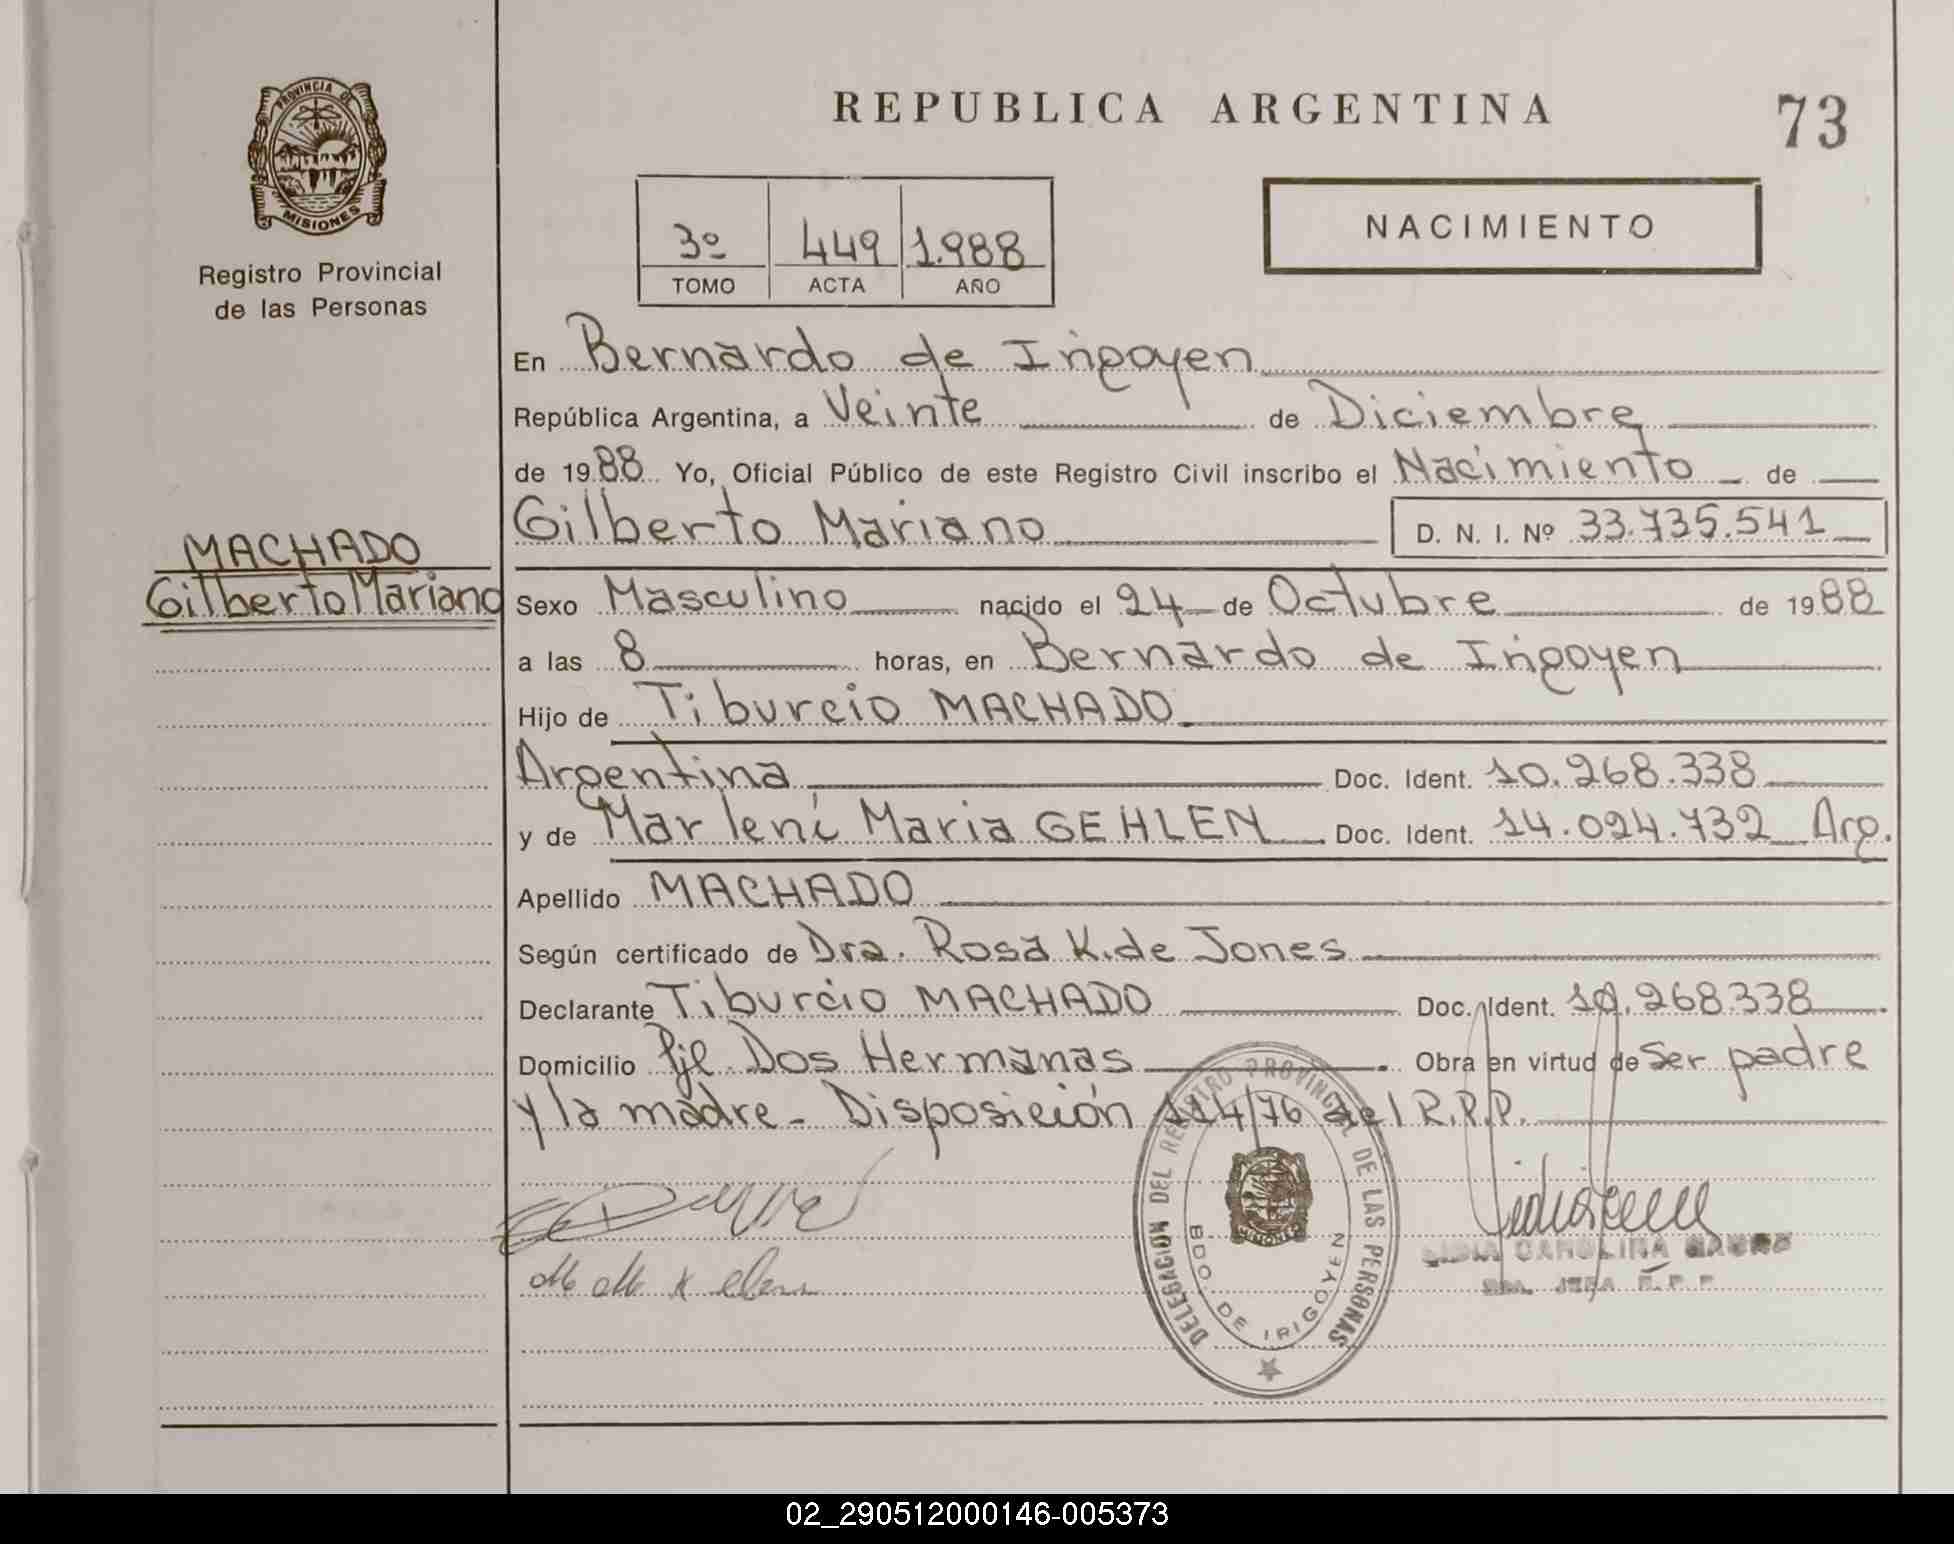 REPUBLICA ARGENTINA
73
PROVINCIA DE
MISIONES
Registro Provincial
de las Personas
3º 449 1.988
TOMO ACTA AÑO
NACIMIENTO
En Bernardo de Irigoyen
República Argentina, a Veinte de Diciembre
de 1988 Yo, Oficial Público de este Registro Civil inscribo el Nacimiento de
Gilberto Mariano D. N. I. Nº 33.735.541
MACHADO
Gilberto Mariano
Sexo Masculino nacido el 24 de Octubre de 1988
a las 8 horas, en Bernardo de Irigoyen
Hijo de Tiburcio MACHADO
Argentina Doc. Ident. 10.268.338
y de Marlení Maria GEHLEN Doc. Ident. 14.024.732 Arg.
Apellido MACHADO
Según certificado de Dra. Rosa K. de Jones
Declarante Tiburcio MACHADO Doc. Ident. 10.268.338
Domicilio Pje. Dos Hermanas Obra en virtud de Ser padre
y la madre - Disposición 114/76 del R.P.P.
DELEGACION DEL REGISTRO PROVINCIAL DE LAS PERSONAS
BDO. DE IRIGOYEN
LIDIA CAROLINA
JEFA R. P. P.
02_290512000146-005373